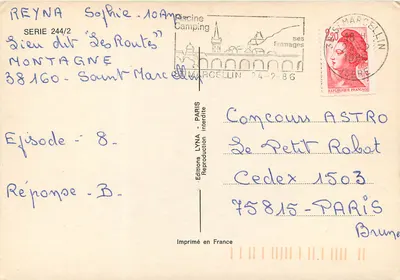 REYNA Sophie - 10 Ans
SERIE 244/2
Lieu dit "Les Routes"
MONTAGNE
38160 - Saint Marcellin
Episode - 8.
Réponse - B.
Piscine
Camping
ses
fromages
MARCELLIN 24-2-86
ST MARCELLIN
ISERE
Editions LYNA - PARIS
Reproduction interdite
Concours ASTRO
Le Petit Robot
Cedex 1503
75815 - PARIS
Brune
Imprimé en France